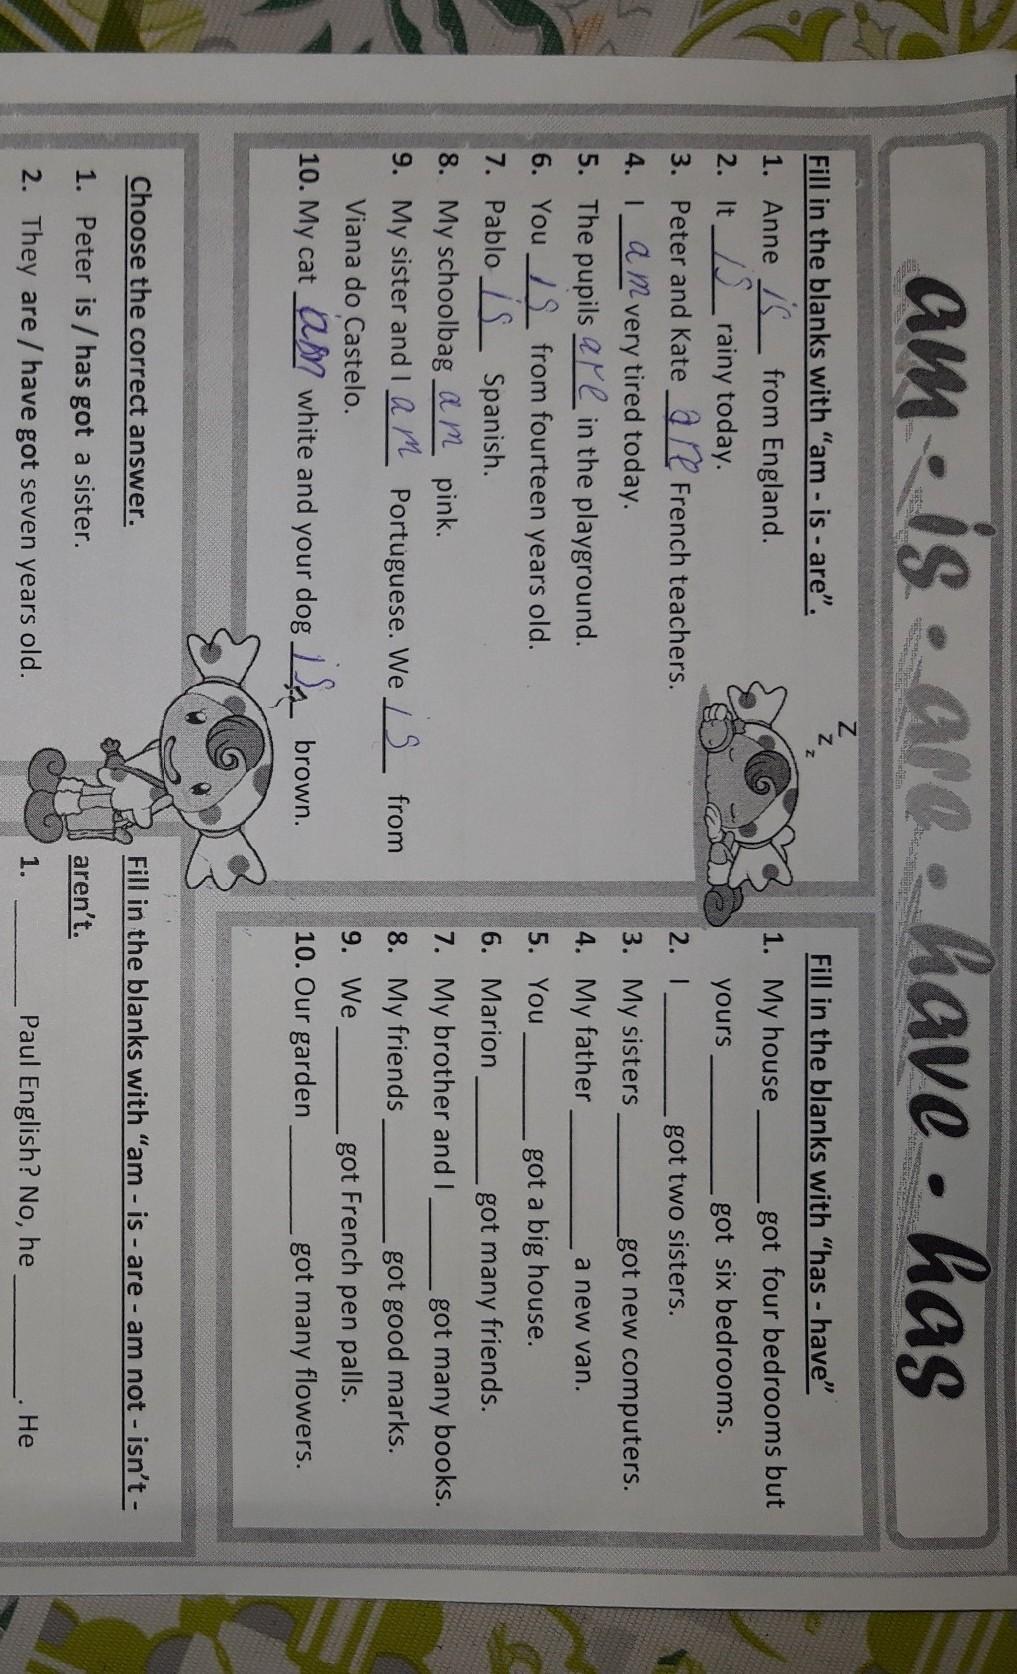 am • is • are • have • has
Fill in the blanks with "am - is - are".
1. Anne is from England.
2. It is rainy today.
3. Peter and Kate are French teachers.
4. I am very tired today.
5. The pupils are in the playground.
6. You is from fourteen years old.
7. Pablo is Spanish.
8. My schoolbag am pink.
9. My sister and I am Portuguese. We is from
Viana do Castelo.
10. My cat am white and your dog is brown.
Z
z
z
Fill in the blanks with "has - have"
1. My house ______ got four bedrooms but
yours ______ got six bedrooms.
2. I ______ got two sisters.
3. My sisters ______ got new computers.
4. My father ______ a new van.
5. You ______ got a big house.
6. Marion ______ got many friends.
7. My brother and I ______ got many books.
8. My friends ______ got good marks.
9. We ______ got French pen palls.
10. Our garden ______ got many flowers.
Choose the correct answer.
1. Peter is / has got a sister.
2. They are / have got seven years old.
Fill in the blanks with "am - is - are - am not - isn't -
aren't.
1. ______ Paul English? No, he ______. He